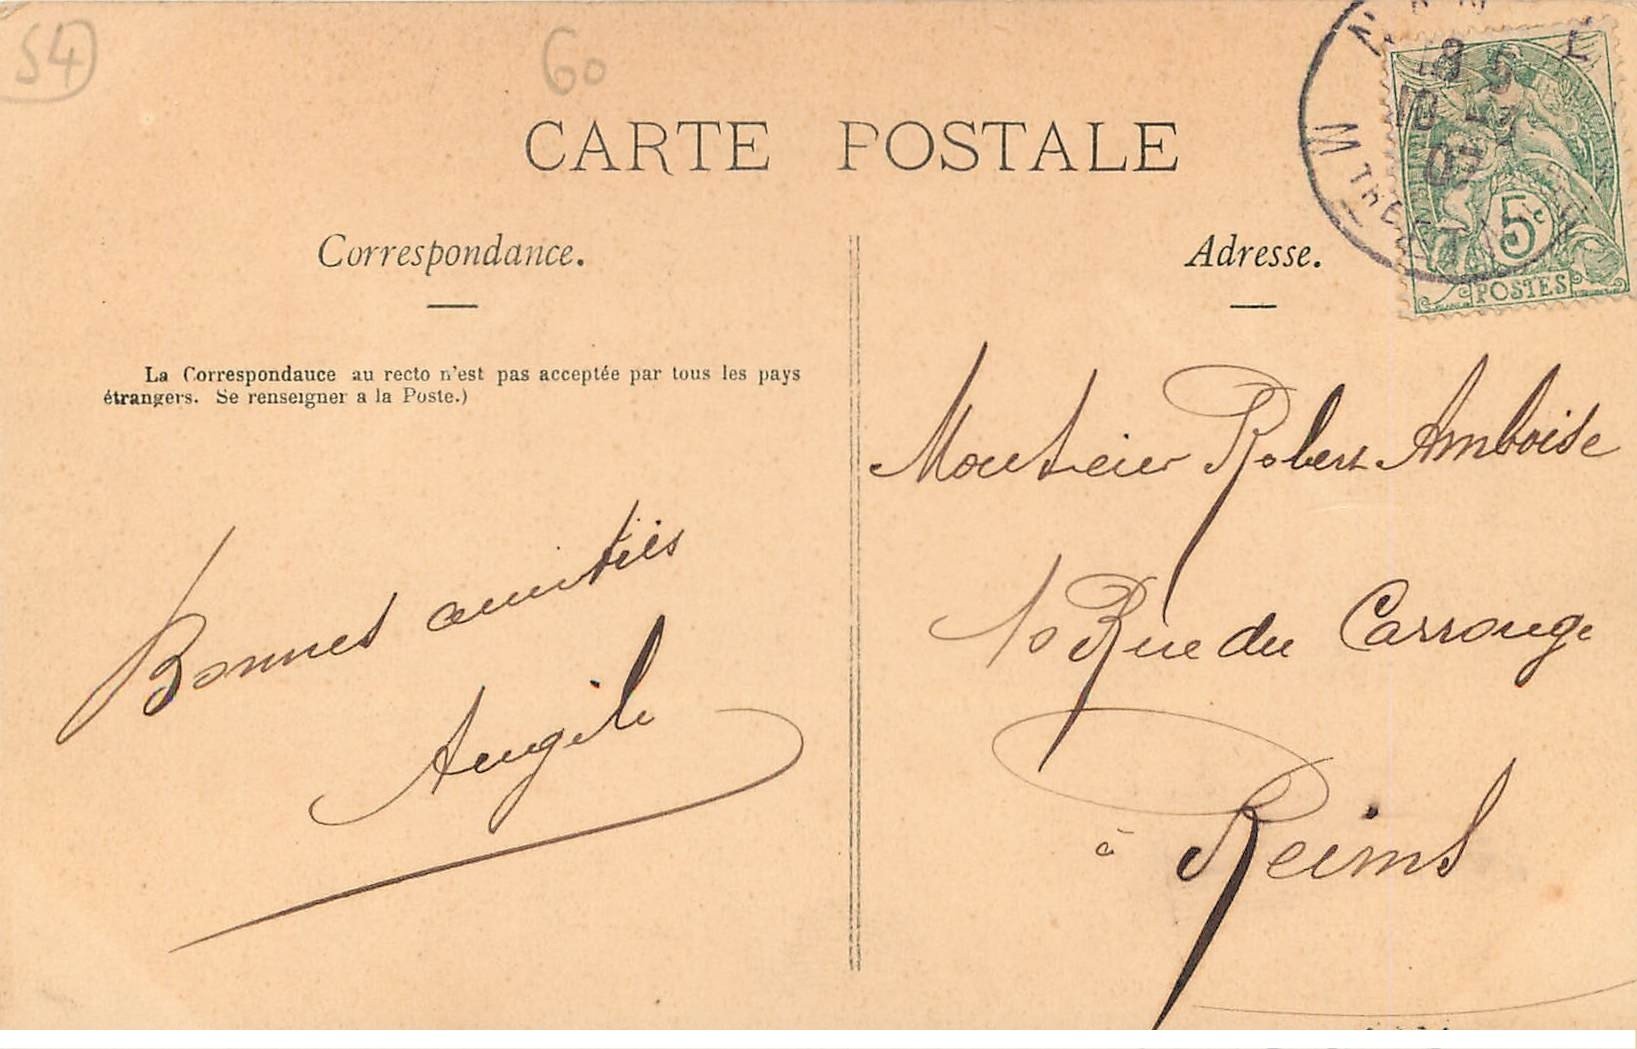 54
60
CARTE POSTALE
Correspondance.
Adresse.
La Correspondauce au recto n'est pas acceptée par tous les pays
étrangers. Se renseigner a la Poste.)
5c
POSTES
Bonnes amitiés
Angèle
Monsieur Robert Amboise
10 Rue du Carrouge
à Reims